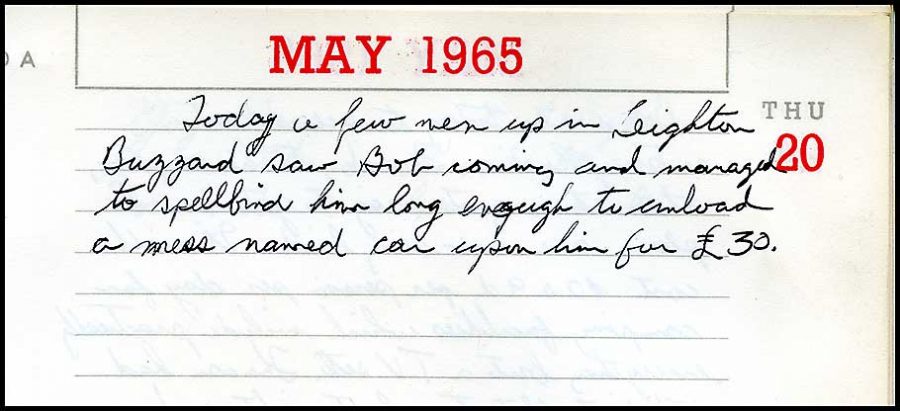 DA
MAY 1965
THU
20
Today a few men up in Leighton
Buzzard saw Bob coming and managed
to spellbind him long enough to unload
a mess named car upon him for £30.